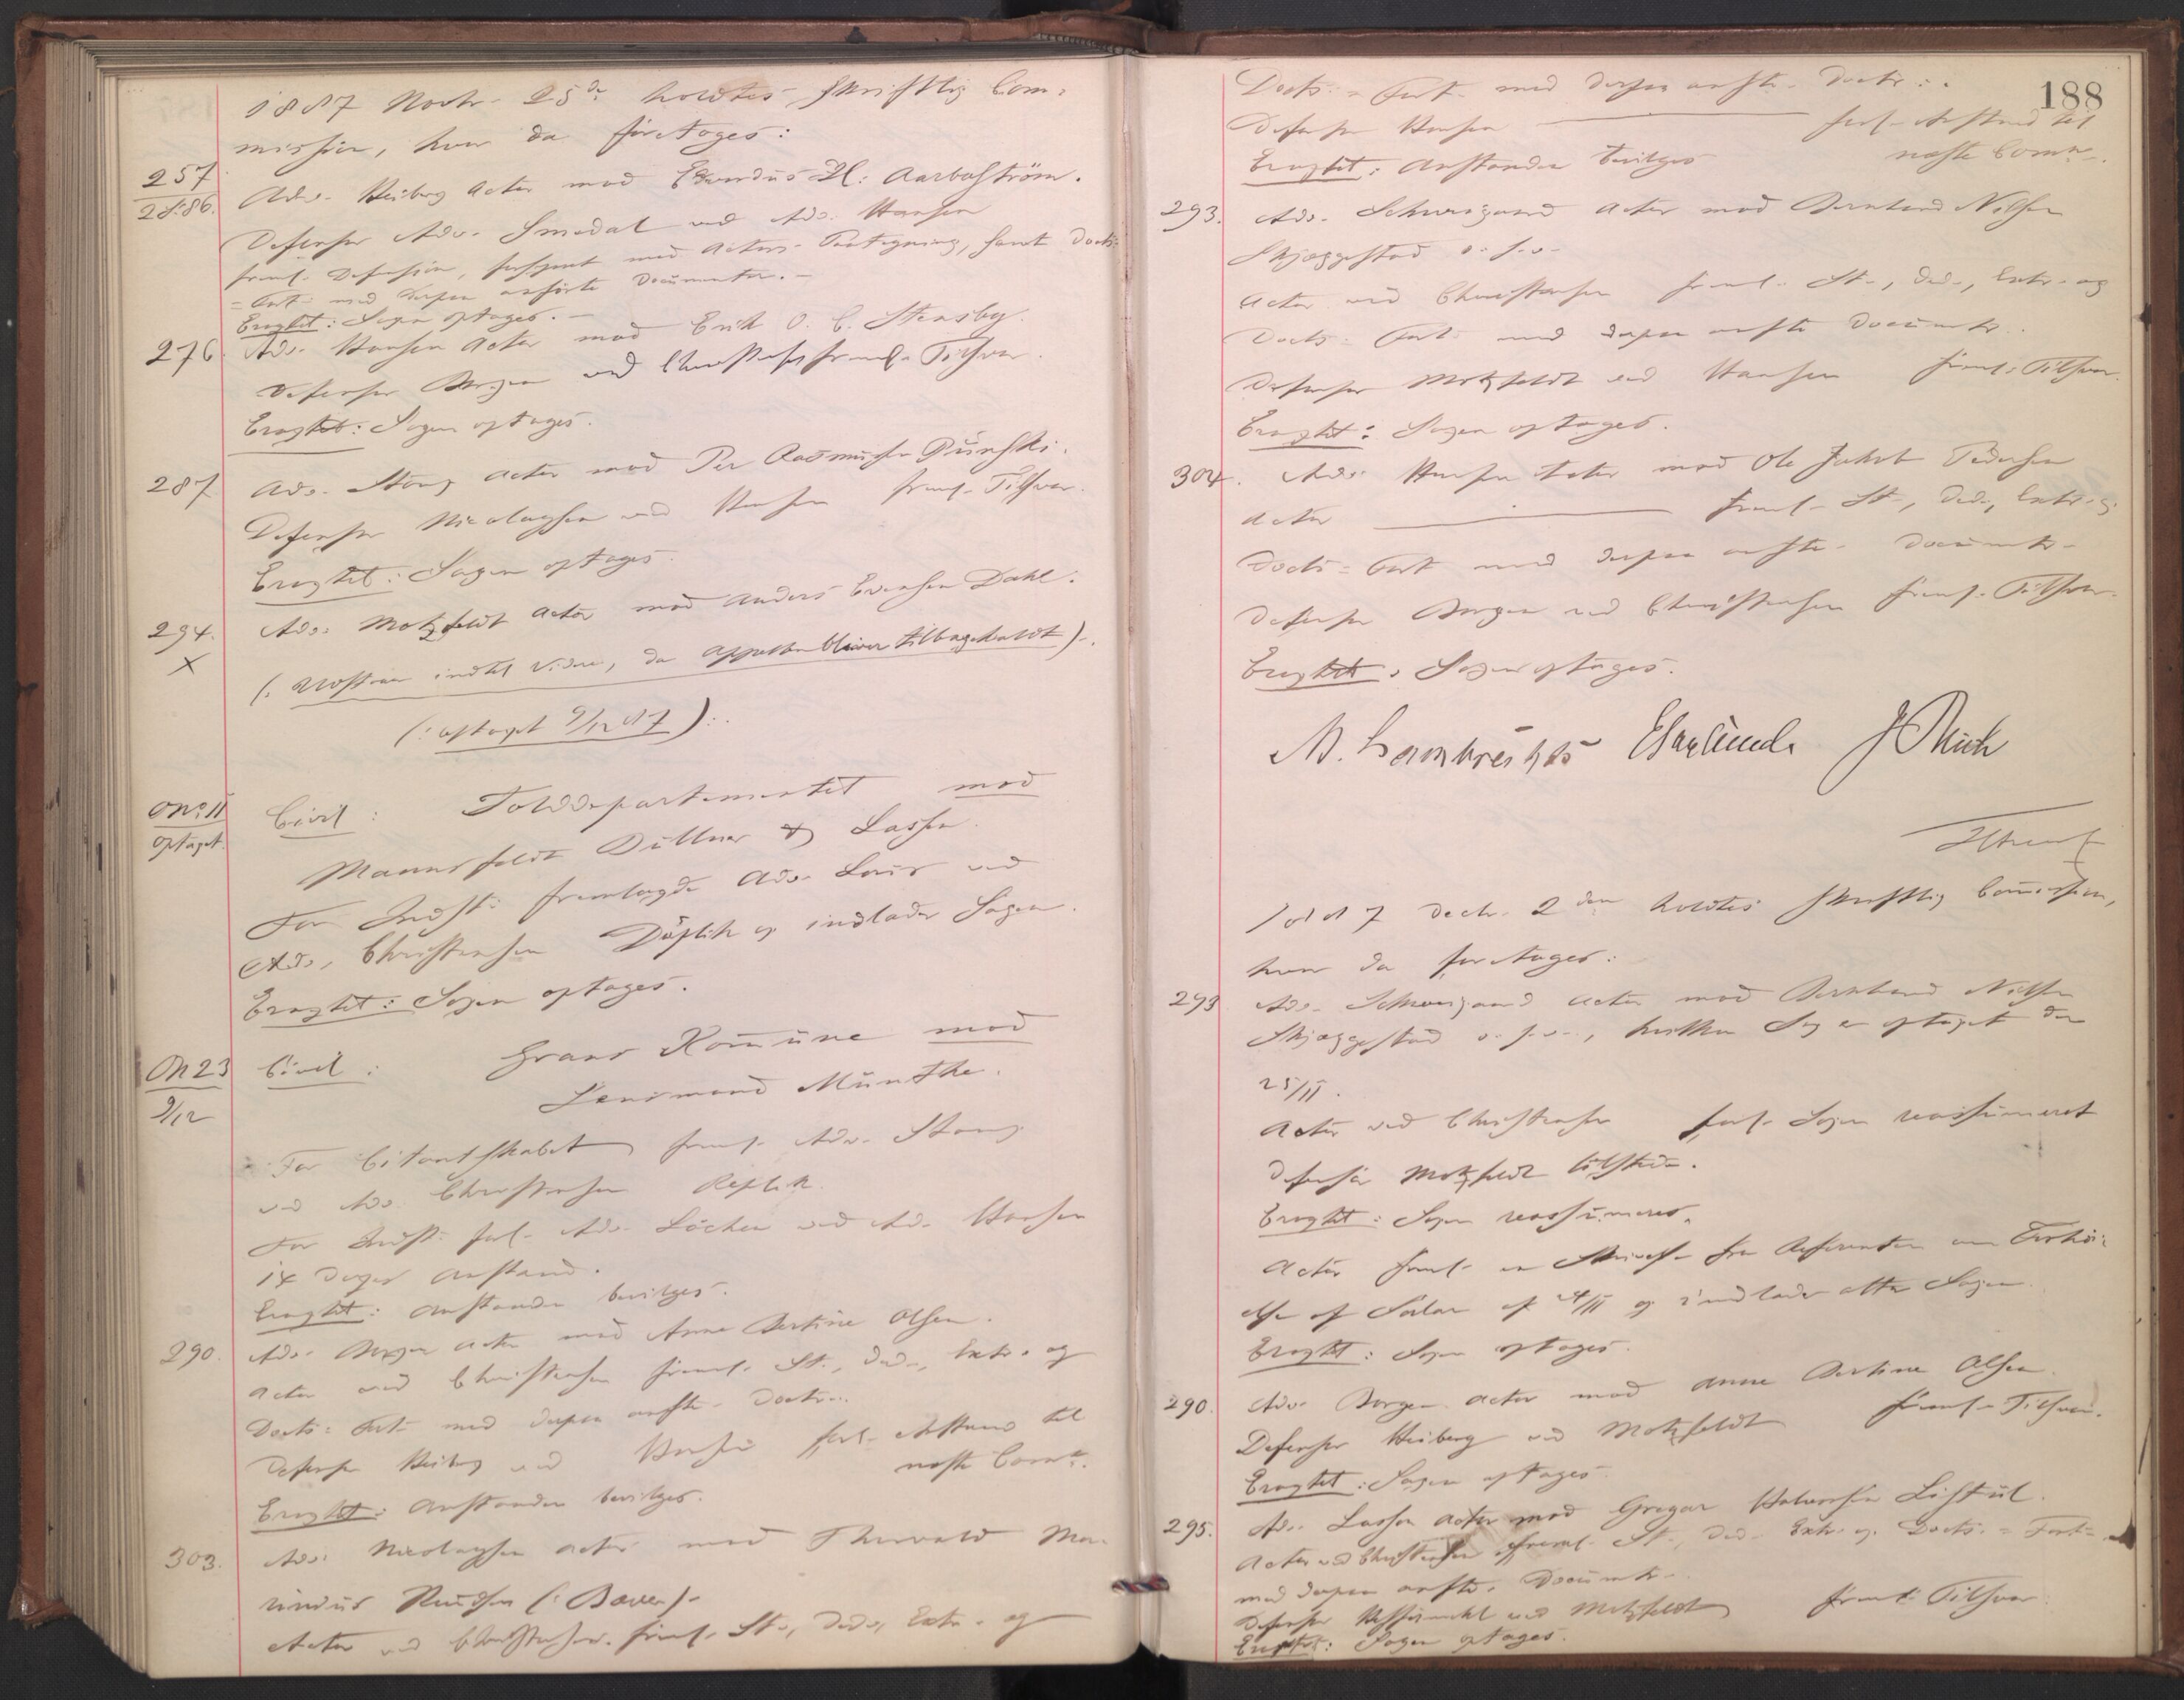 1887 Novbr. 25de holdtes skriftlig Com=
mission, hvor da foretoges:
257
2 S. 86.
Adv. Heiberg Actor mod Edvardus H. Aarbostrøm.
Defensor Adv. Smedal ved Adv. Hansen
freml. Defension, forsynet med Actors Paategning, samt Docts=
=Fort. med derpaa anførte Documenter. –
Eragtet: Sagen optages. –
276. Adv. Hansen Actor mod Erik O. C. Stensby.
Defensor Bergen ved Christensen freml. Tilsvar.
Eragtet: Sagen optages.
287 Adv. Stang Actor mod Per Rasmussen
Defensor Nicolaysen ved Hansen freml. Tilsvar.
Eragtet: Sagen optages.
294. Adv. Motzfeldt Actor mod Anders Evensen Dahl.
X
(: indtil videre, da Appellen bliver tilbageholdt).
(: optaget 9/12 87):
On: 11 Civil: Tolddepartementet mod
optaget.
Mannsfeldt Düllner & Lassen.
For Indst: fremlagde Adv. ved
Adv. Christensen Duplik og indlader Sagen.
Eragtet: Sagen optages.
On 23 Civil: Grans Kommune mod
9/12
Lensmand Münthe.
For Citantskabet freml. Adv. Stang
ved Adv. Christensen Replik.
For Indst: forl. Adv. Löchen ved Adv. Hansen
14 Dages Anstand.
Eragtet: Anstanden bevilges.
290. Adv. Bergen Actor mod Anne Bertine Olsen.
Actor ved Christensen freml. St., Ded., Extr. og
Docts= Fort. med derpaa anfte. Doctr.
Defensor Heiberg ved Hansen forl. Anstand til
næste Comn.
Eragtet: Anstanden bevilges.
303. Adv. Nicolaysen Actor mod Thorvald Ma=
rinius Knudsen (: Baver).
Actor ved Christensen freml. St., Ded., Extr. og
188
Docts. = Fort. med derpaa anfte. Doctr:.
Defensor Hansen forl. Anstand til
næste Comn.
Eragtet: Anstanden bevilges
293. Adv. Schweigaard Actor mod Bernhard Nilsen
Skjæggestad o. s. v.
Actor ved Christensen freml. St., Ded., Extr. og
Docts= Fort. med derpaa anfte Documtr.
Defensor Motzfeldt ved Hansen freml. Tilsvar.
Eragtet: Sagen optages.
304. Adv. Hansen Actor mod Ole Jakob Pedersen
Actor freml. St., Ded., Extr. og
Docts= Fort. med derpaa anfte. Documtr.
Defensor Bergen ved Christensen freml. Tilsvar.
Eragtet: Sagen optages.
M. Lambrechts
1887 Decbr. 2den holdtes skriftlig Commission,
hvor da foretoges:
293 Adv. Schweigaard Actor mod Bernhard Nilsen
Skjæggestad o. s. v., hvilken Sag er optaget den
25/11.
Actor ved Christensen forl. Sagen reassumeret
Defensor Motzfeldt tilstede.
Eragtet: Sagen reassumeres.
Actor freml. en Skrivelse fra Referenten om Forhøi=
else af Salær af 24/11 og indlader atter Sagen.
Eragtet: Sagen optages.
290. Adv. Bergen Actor mod Anne Bertine Olsen.
Defensor Heiberg ved Motzfeldt freml. Tilsvar.
Eragtet: Sagen optages
295. Adv. Lassen Actor mod Gregar Halvorsen Listul.
Actor ved Christensen freml. St., Ded. Extr. og Docts. = Fort=
med derpaa anfte. Documtr.
Defensor ved Motzfeldt freml. Tilsvar
Eragtet: Sagen optages.